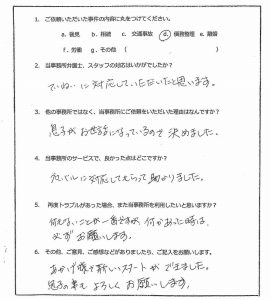 1. ご依頼いただいた事件の内容に丸をつけてください。
a. 後見 b. 相続 c. 交通事故 d. 債務整理 e. 離婚
f. 労働 g. その他（ ）
2. 当事務所弁護士、スタッフの対応はいかがでしたか？
ていねいに対応していただいたと思います。
3. 他の事務所ではなく、当事務所にご依頼をいただいた理由はなんですか？
息子がお世話になっているので決めました。
4. 当事務所のサービスで、良かった点はどこですか？
に対応してもらって助かりました。
5. 再度トラブルがあった場合、また当事務所を利用したいと思いますか？
何もないことが一番ですが、何かあった時は、
必ずお願いします。
6. その他、ご意見、ご感想などがありましたら、ご記入をお願いします。
おかげ様で新しいスタートができました。
息子の事も よろしく お願いします。